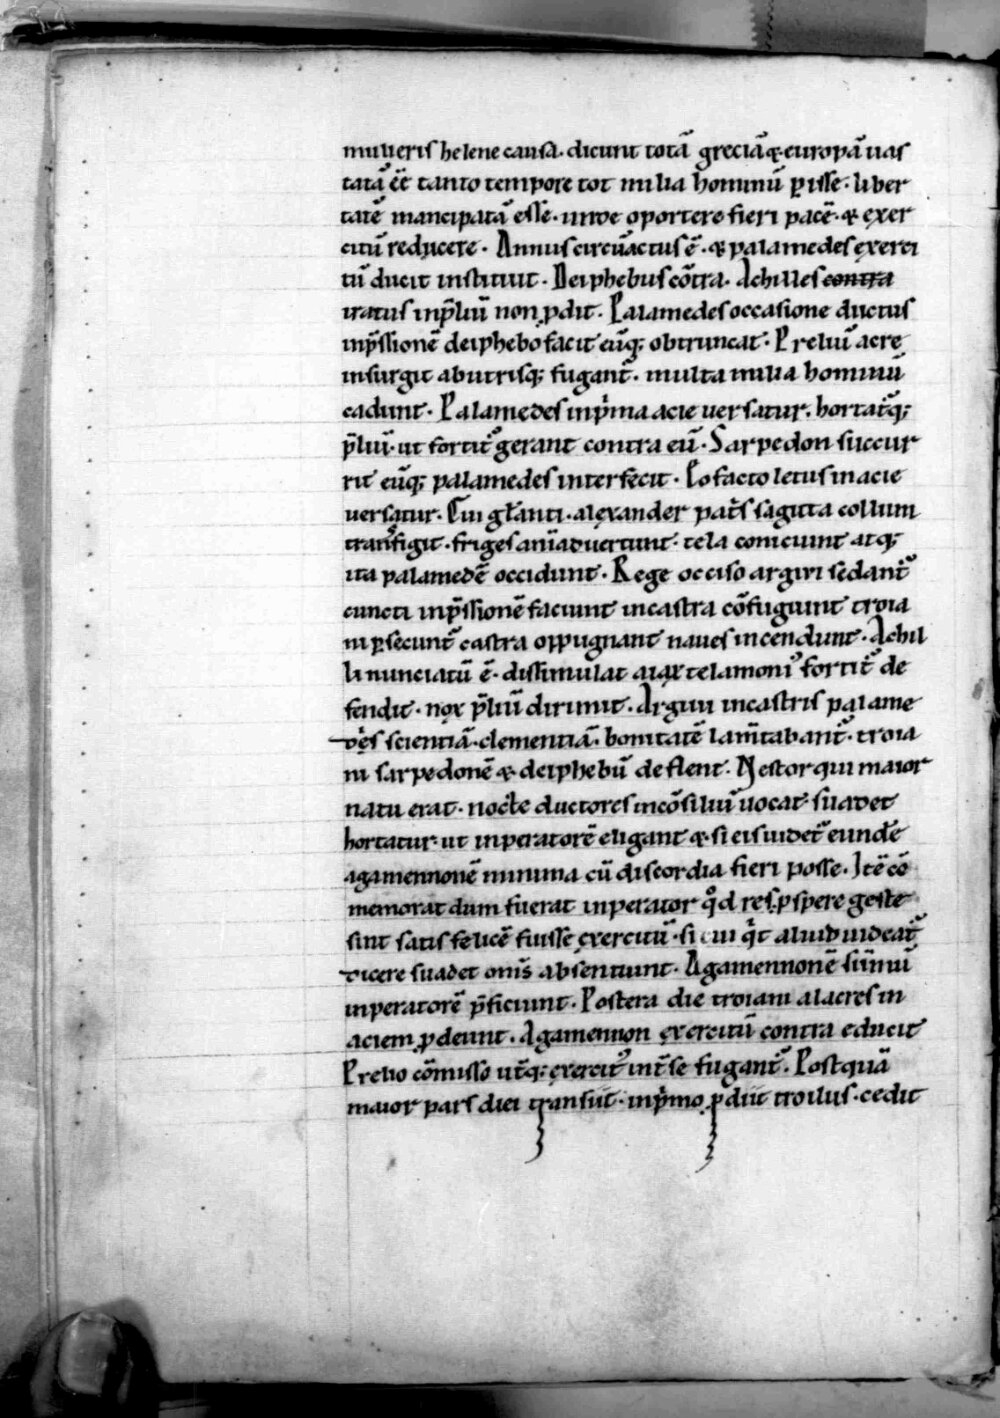 mulieris helene causa · dicunt totã greciã & europã uas
tatã eē tanto tempore tot milia hominũ ꝑisse · liber
tatẽ mancipatã esse · unde oportere fieri pacẽ · & exer
citũ reducere · Annus circũactus ẽ · & palamedes exerci
tũ ducit instituit · Deiphebus cõtra · Achilles contra
iratus inp̃liũ non ꝓdit · Palamedes occasione ductus
inp̃ssionẽ deiphebo facit eũq; obtruncat · Preliũ acre
insurgit ab utrisq; fugant᷑ · multa milia hominũ
cadunt · Palamedes inp̃ma acie uersatur · hortat᷑q;
p̃liũ · ut fortit᷑ gerant contra eũ · Sarpedon succur
rit eũq; palamedes interfecit · Eo facto letus in acie
uersatur · Cui gl̃anti · alexander pat̃s sagitta collum
trãnsfigit · friges anĩaduertunt · tela coniciunt atq;
ita palamedẽ occidunt · Rege occiso argiui sedant᷑
cuncti inp̃ssionẽ faciunt incastra cõfugiunt troia
ni ꝑsecunt᷑ castra oppugnant naues incendunt · Achil
li nunciatũ ẽ · dissimulat aiax telamoni᷒ fortit᷑ de
fendit · nox p̃liũ dirimit · Argiui incastris palame
des scientiã · clementiã · bonitatẽ lam̃tabant᷑ · troia
ni sarpedonẽ & deiphebũ deflent · Nestor qui maior
natu erat · nocte ductores incõsiliũ uocat · suadet
hortatur · ut inperatorẽ eligant & si eis uidet᷑ eundẽ
agamennonẽ minima cũ discordia fieri posse · Itẽ cõ
memorat dum fuerat inperator qͦd res ꝓspere geste
sint satis felicẽ fuisse exercitũ · si cui qͥt aliud uideat᷑
dicere suadet om̃s absentiunt · Agamennonẽ sũmũ
inperatorẽ p̃ficiunt · Postera die troiani alacres in
aciem ꝓdeunt · Agamennon exercitũ contra educit
Prelio cõmisso ut̃q; exercit᷒ int̃se fugant᷑ · Postquã
maior pars diei transiit · inp̃mo ꝓdiit troilus · cedit